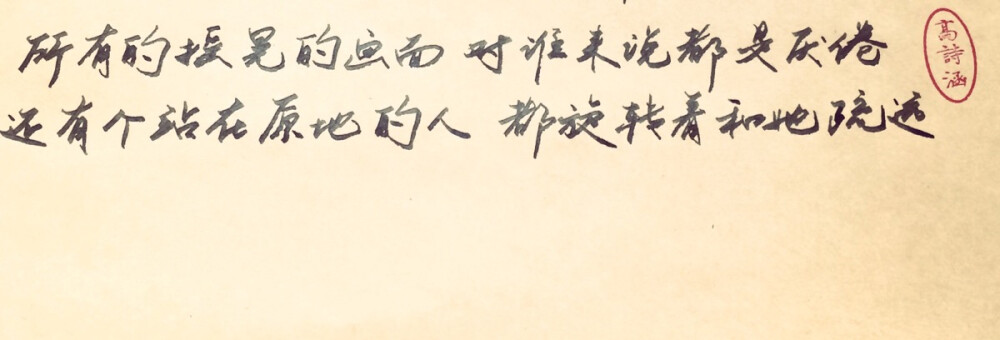 所有的摇晃的画面 对谁来说都是厌倦
还有个站在原地的人 都旋转着和她疏远
高詩涵